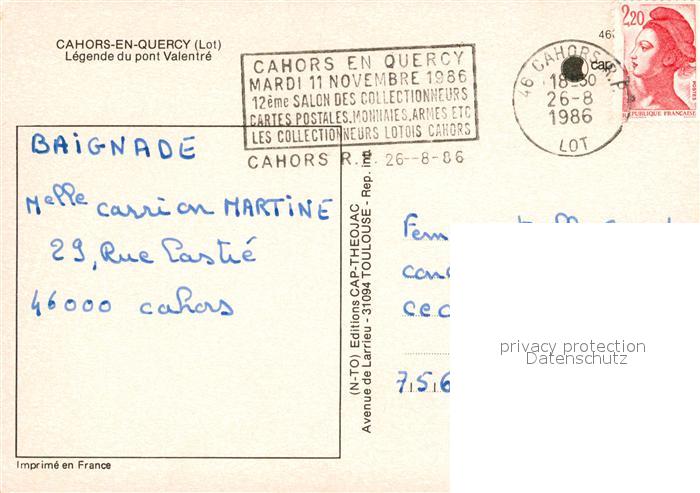 CAHORS-EN-QUERCY (Lot)
Légende du pont Valentré
CAHORS EN QUERCY
MARDI 11 NOVEMBRE 1986
12ème SALON DES COLLECTIONNEURS
CARTES POSTALES, MONNAIES, ARMES ETC
LES COLLECTIONNEURS LOTOIS CAHORS
CAHORS R. 26--8-86
46 CAHORS R.P.
18-30
26-8
1986
LOT
cap
2,20
POSTES
REPUBLIQUE FRANÇAISE
BAIGNADE
Melle Carrion MARTINE
29, Rue Pastié
46000 cahors
(N-TO) Editions CAP-THEOJAC
Avenue de Larrieu - 31094 TOULOUSE - Rep. int.
Fem
CEC
756
privacy protection
Datenschutz
Imprimé en France